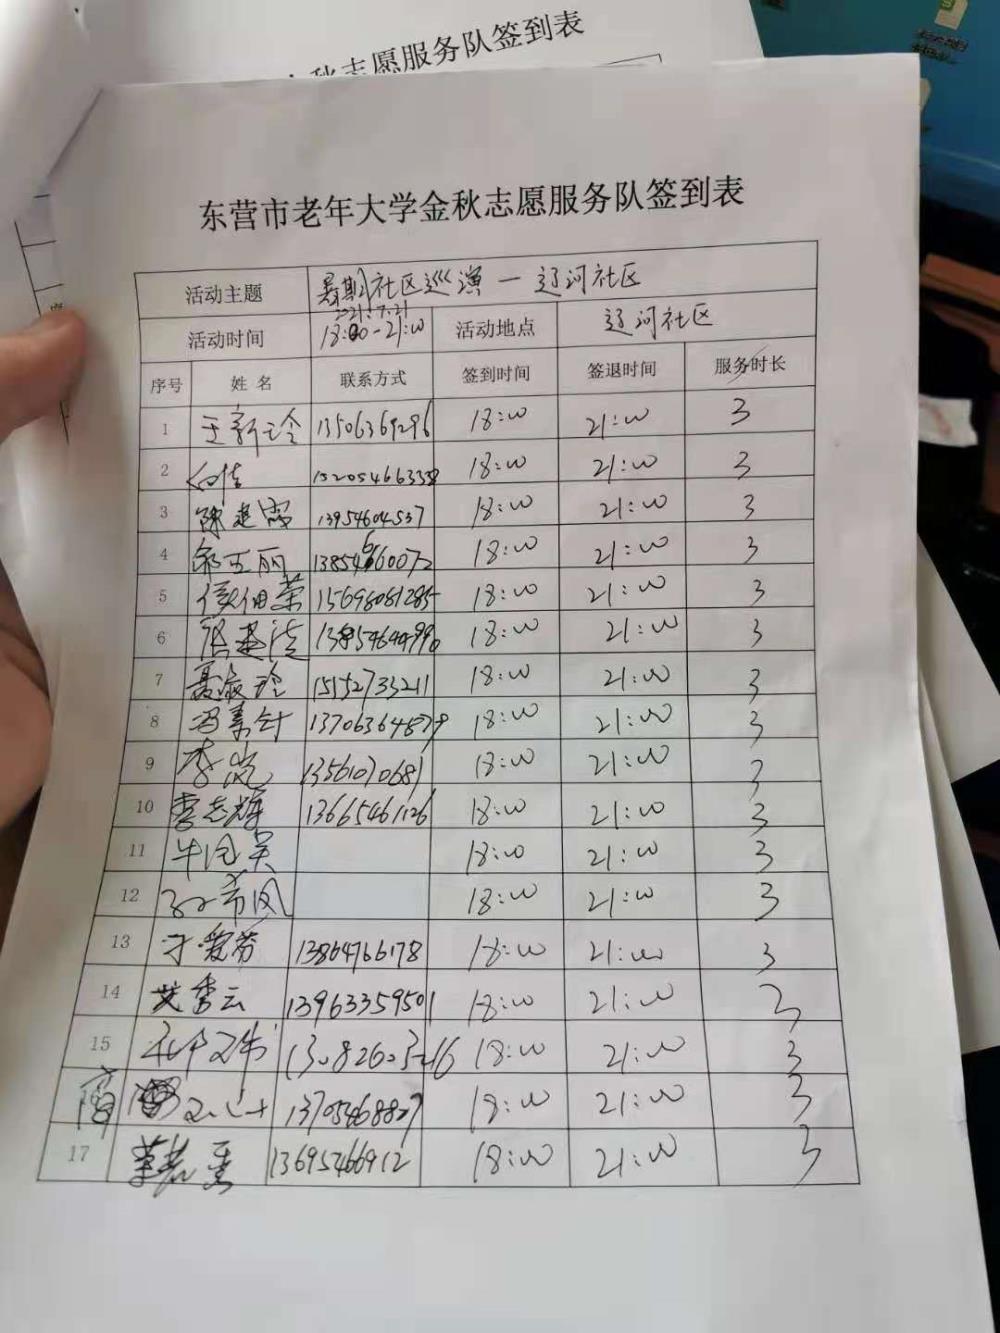 秋志愿服务队签到表
东营市老年大学金秋志愿服务队签到表
活动主题 暑期社区巡演—辽河社区
2021.7.21
活动时间 18:00-21:00 活动地点 辽河社区
序号 姓名 联系方式 签到时间 签退时间 服务时长
1 王新玲 13506369296 18:00 21:00 3
2 18:00 21:00 3
3 陈建 13954604537 18:00 21:00 3
4 郭玉丽 18:00 21:00 3
5 侯佃荣 15698081285 18:00 21:00 3
6 18:00 21:00 3
7 聂淑玲 15152733211 18:00 21:00 3
8 冯素针 18:00 21:00 3
9 李岚 13561070681 18:00 21:00 3
10 李志辉 13665461126 18:00 21:00 3
11 牛 18:00 21:00 3
12 18:00 21:00 3
13 于爱芬 13864766178 18:00 21:00 3
14 艾秀云 13963359501 18:00 21:00 3
15 18:00 21:00 3
18:00 21:00 3
17 13695466912 18:00 21:00 3